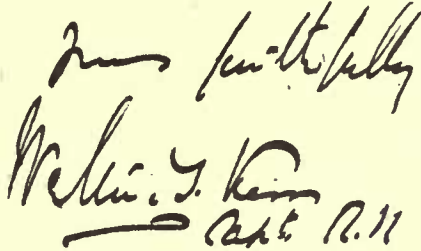 Yours faithfully
Walter T. Kerr
Capt. R.N